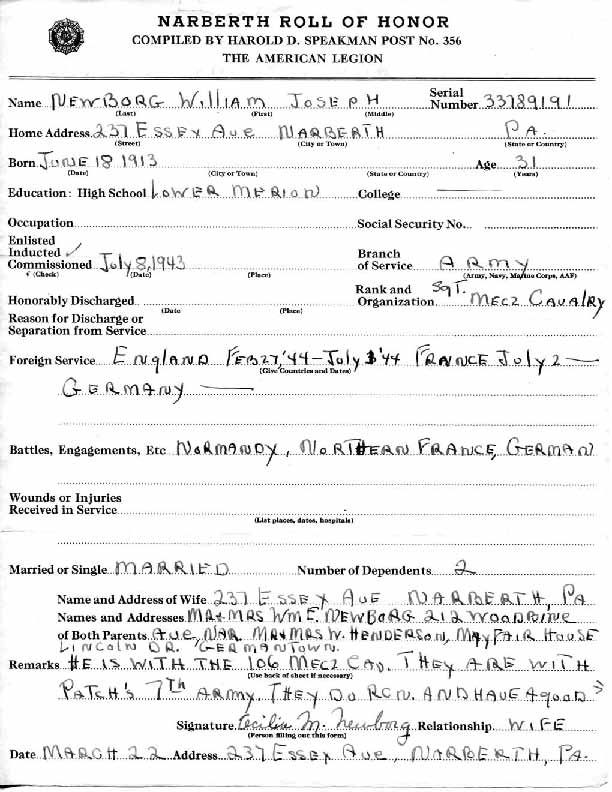 NARBERTH ROLL OF HONOR
COMPILED BY HAROLD D. SPEAKMAN POST No. 356
THE AMERICAN LEGION
Name NEWBORG WILLIAM JOSEPH Serial Number 33789191
(Last) (First) (Middle)
Home Address 237 ESSEX AVE NARBERTH PA.
(Street) (City or Town) (State or Country)
Born JUNE 18 1913 Age 31
(Date) (City or Town) (State or Country) (Years)
Education: High School LOWER MERION College
Occupation Social Security No.
Enlisted
Inducted ✓
Commissioned July 8, 1943 Branch of Service ARMY
(Check) (Date) (Place) (Army, Navy, Marine Corps, AAF)
Honorably Discharged Rank and Organization SgT. MECZ CAVALRY
(Date (Place)
Reason for Discharge or
Separation from Service
Foreign Service ENGLAND FEB 27, '44 – July '44 FRANCE July 2 —
(Give Countries and Dates)
GERMANY —
Battles, Engagements, Etc NORMANDY, NORTHERN FRANCE, GERMAN
Wounds or Injuries
Received in Service
(List places, dates, hospitals)
Married or Single MARRIED Number of Dependents 2
Name and Address of Wife 237 ESSEX AVE NARBERTH, PA
Names and Addresses MR+MRS WM E. NEWBORG 212 WOODBINE
of Both Parents AVE, NAR. MR+MRS W. HENDERSON, MAYFAIR HOUSE
LINCOLN DR. GERMANTOWN.
Remarks HE IS WITH THE 106 MECZ CAV. THEY ARE WITH
(Use back of sheet if necessary)
PATCH'S 7TH ARMY. THEY DO RCN. AND HAVE A GOOD
Signature Cecilia M. Newborg Relationship WIFE
(Person filling out this form)
Date MARCH 22 Address 237 ESSEX AVE, NARBERTH, PA.